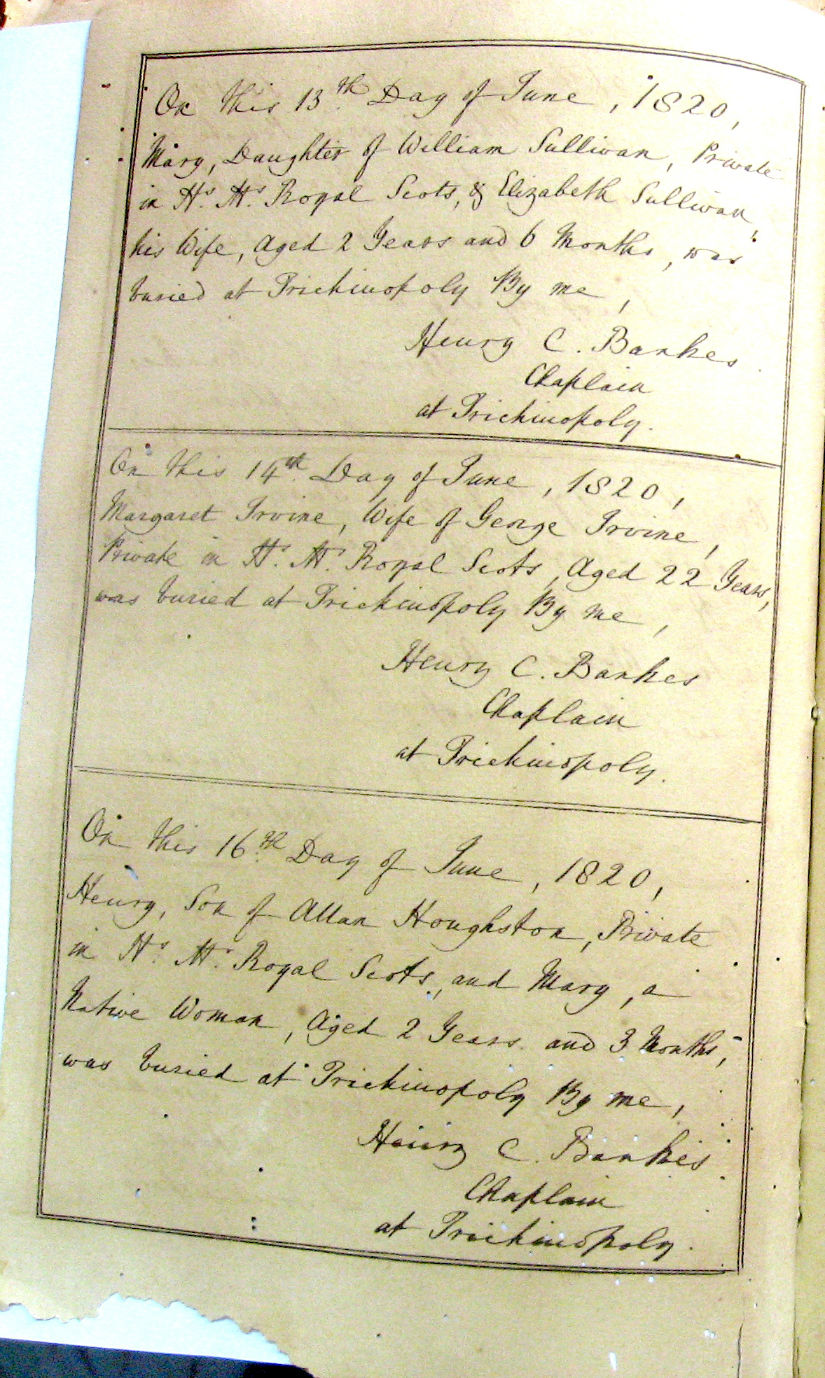 On this 13th Day of June, 1820,
Mary, Daughter of William Sullivan, Private
in Hs. Ms. Royal Scots, & Elizabeth Sullivan,
his Wife, Aged 2 Years and 6 Months, was
buried at Trichinopoly By me,
Henry C. Bankes
Chaplain
at Trichinopoly.
On this 14th Day of June, 1820,
Margaret Irvine, Wife of George Irvine,
Private in Hs. Ms. Royal Scots, Aged 22 Years,
was buried at Trichinopoly By me,
Henry C. Bankes
Chaplain
at Trichinopoly.
On this 16th Day of June, 1820,
Henry, Son of Allan Houghston, Private
in Hs. Ms. Royal Scots, and Mary, a
Native Woman, Aged 2 Years and 3 Months,
was buried at Trichinopoly By me,
Henry C. Bankes
Chaplain
at Trichinopoly.